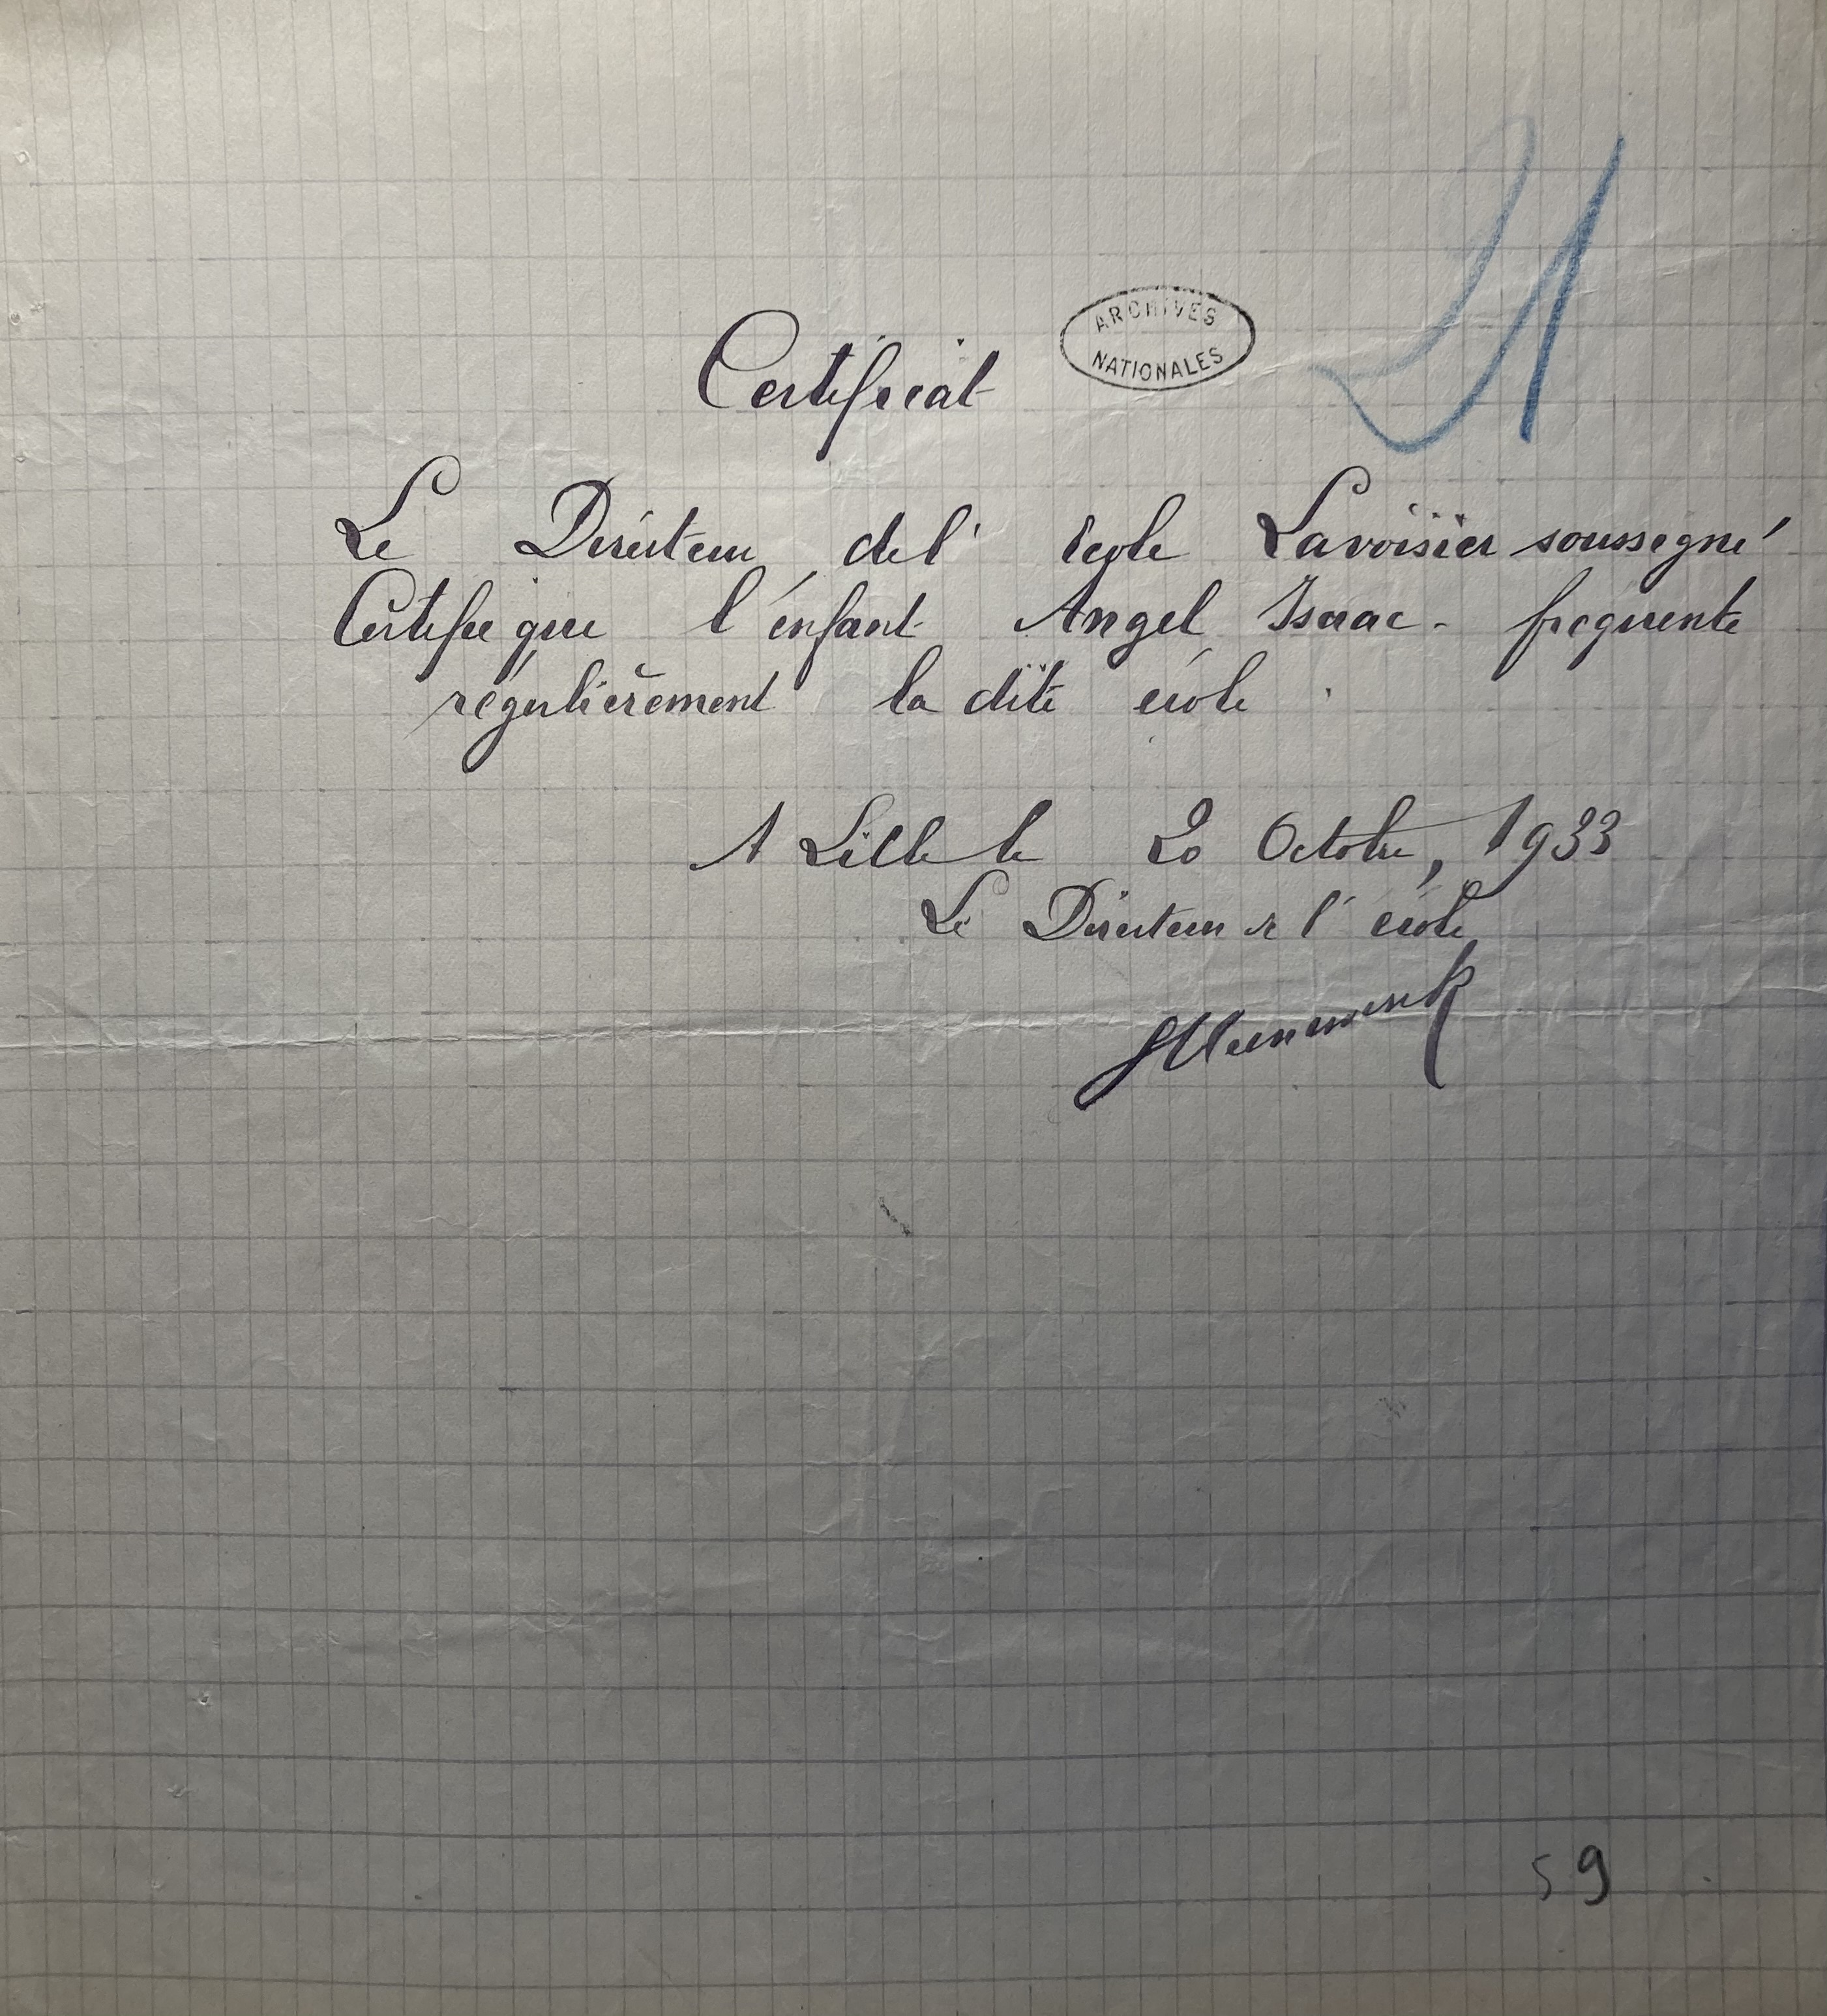 21
ARCHIVES
NATIONALES
Certificat
Le Directeur de l'école Lavoisier soussigné
Certifie que l'enfant Angel Isaac - fréquente
régulièrement la dite école.
A Lille le 20 Octobre, 1933
Le Directeur de l'école
59